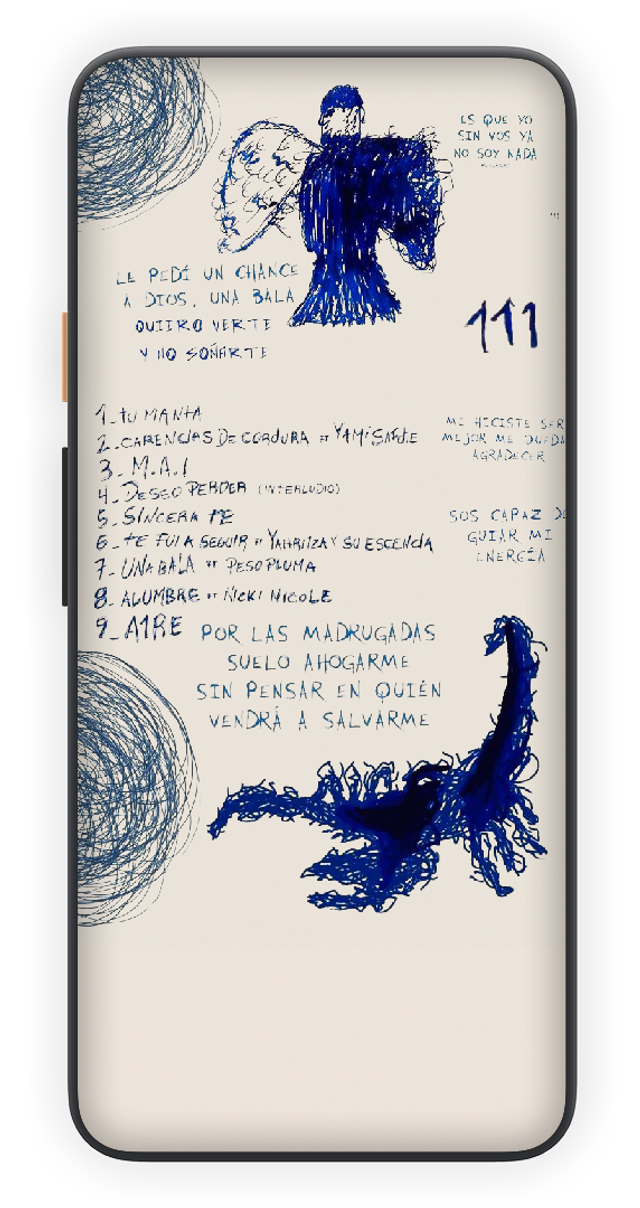 ES QUE YO
SIN VOS YA
NO SOY NADA
LE PEDÍ UN CHANCE
A DIOS, UNA BALA
QUIERO VERTE
Y NO SOÑARTE
111
1_ TU MANTA
2_ CARENCIAS DE CORDURA " YAMI SAFDIE
3_ M.A.I
4_ DESEO PERDER (INTERLUDIO)
5_ SINCERA TE
6_ TE FUI A SEGUIR " YAHRITZA Y SU ESCENCIA
7_ UNA BALA " PESO PLUMA
8_ ALUMBRE " NICKI NICOLE
9_ A1RE
ME HICISTE SER
MEJOR ME QUEDA
AGRADECER
SOS CAPAZ DE
GUIAR MI
ENERGÍA
POR LAS MADRUGADAS
SUELO AHOGARME
SIN PENSAR EN QUIÉN
VENDRÁ A SALVARME